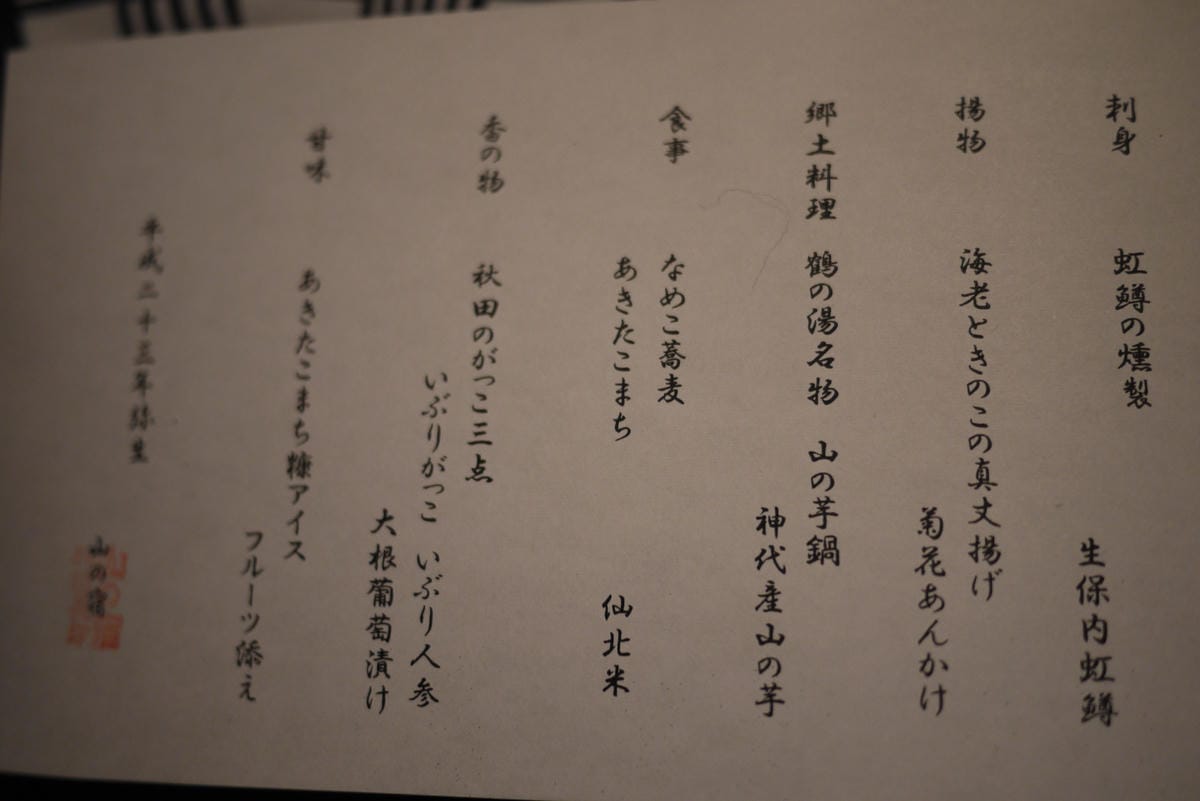 刺身　虹鱒の燻製
生保内虹鱒
揚物　海老ときのこの真丈揚げ
菊花あんかけ
郷土料理　鶴の湯名物　山の芋鍋
神代産山の芋
食事　なめこ蕎麦
あきたこまち　仙北米
香の物　秋田のがっこ三点
いぶりがっこ　いぶり人参
大根葡萄漬け
甘味　あきたこまち糠アイス
フルーツ添え
平成二十三年弥生
山の宿